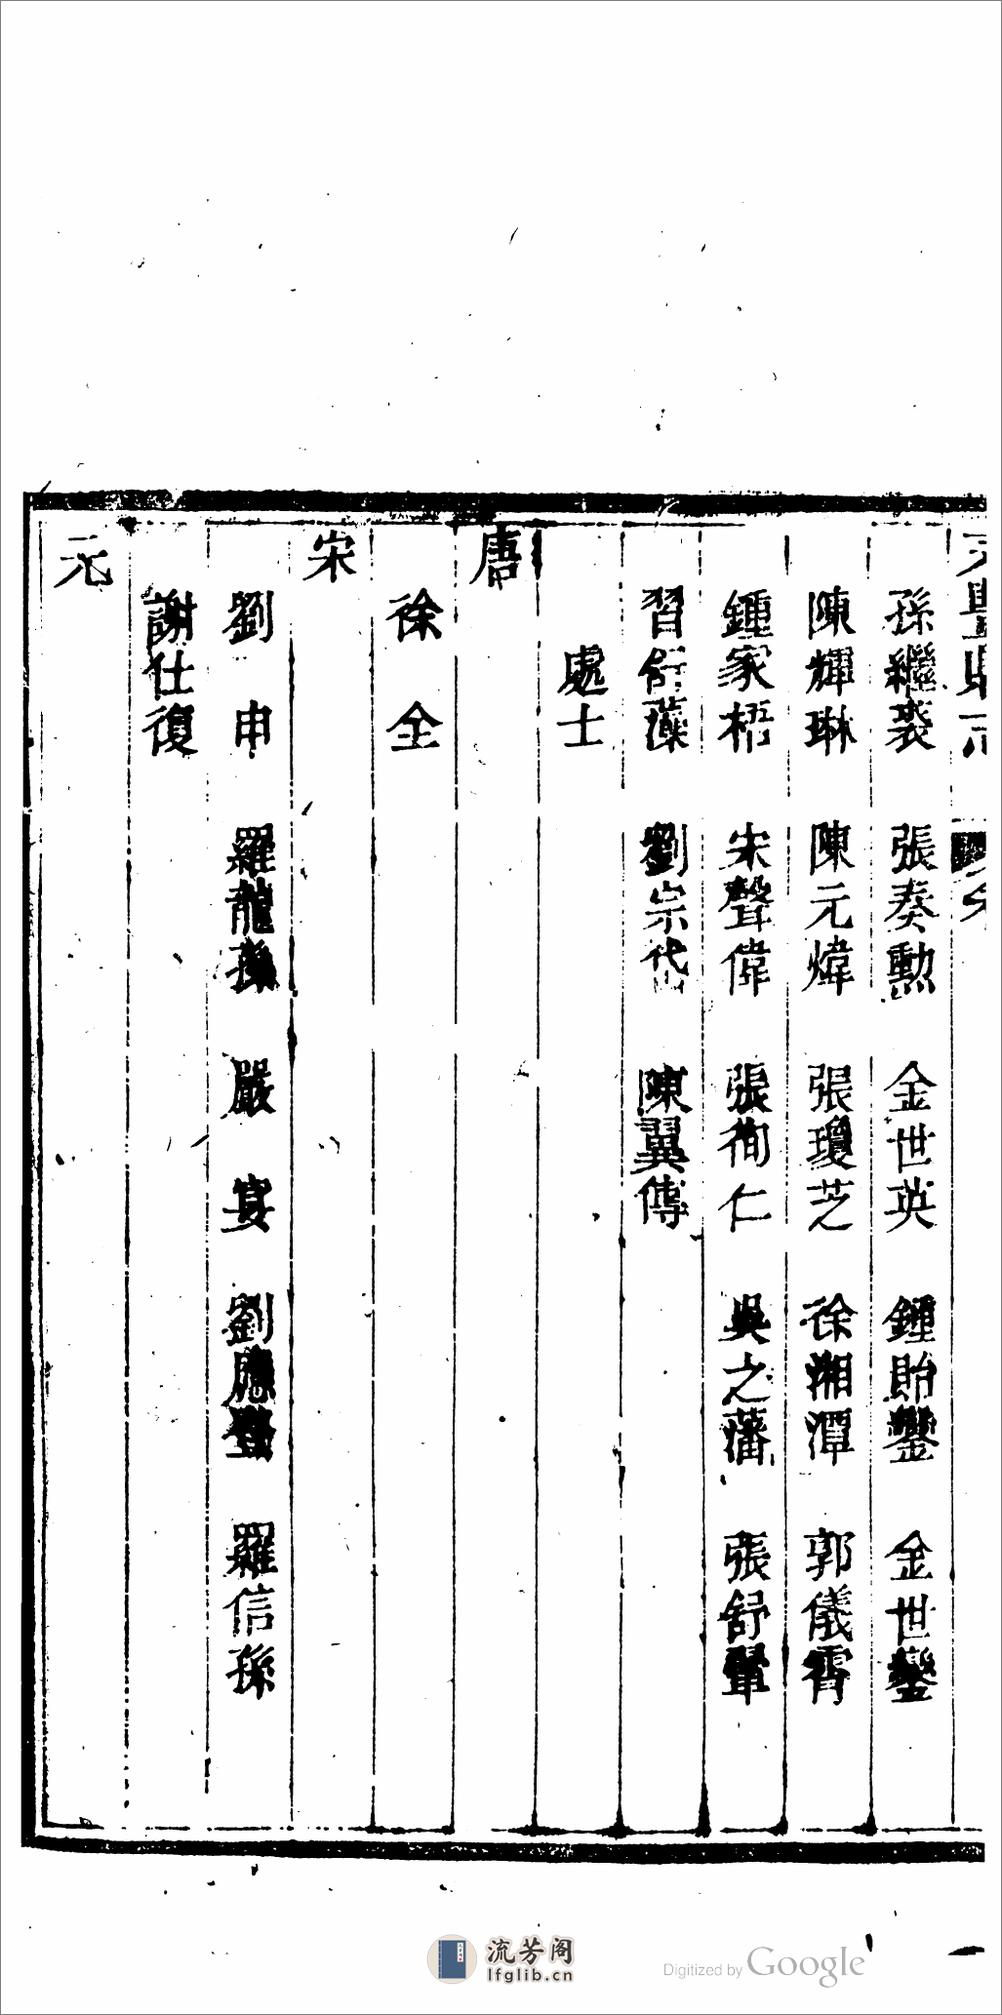 孫繼裘 張奏勳 金世英 鍾貽鑾 金世鑾
陳輝琳 陳元煒 張瓊芝 徐湘潭 郭儀霄
鍾家梧 宋聲偉 張徇仁 吳之藩 張舒翬
習舒藻 劉宗岱 陳翼傳
處士
唐
徐全
宋
劉申 羅龍孫 嚴宴 劉應登 羅信孫
謝仕復
元
流芳阁
lfglib.cn
Digitized by Google